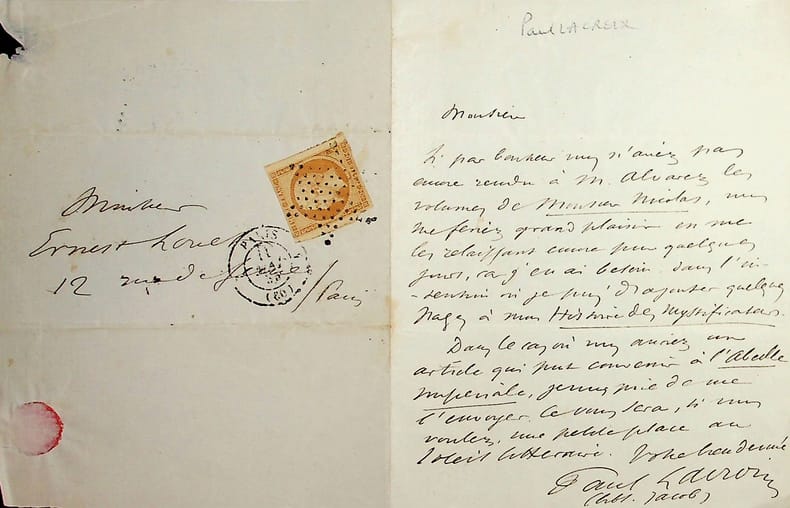 Monsieur
Ernest
12 rue de
Paris
PARIS
11
(60)
Paul LACROIX
Monsieur
Si par bonheur vous n'aviez pas
encore rendu à M. Alvarez les
volumes de Monsieur Nicolas, vous
me feriez grand plaisir en me
les relaissant encore pour quelques
jours, car j'en ai besoin dans l'in-
tention où je suis d'ajouter quelques
pages à mon Histoire des Mystificateurs.
Dans le cas où vous auriez un
article qui pût convenir à l'Abeille
impériale, je vous prie de me
l'envoyer. Ce vous sera, si vous
voulez, une petite place au
soleil littéraire. Votre bien dévoué
Paul Lacroix
(bibl. Jacob)